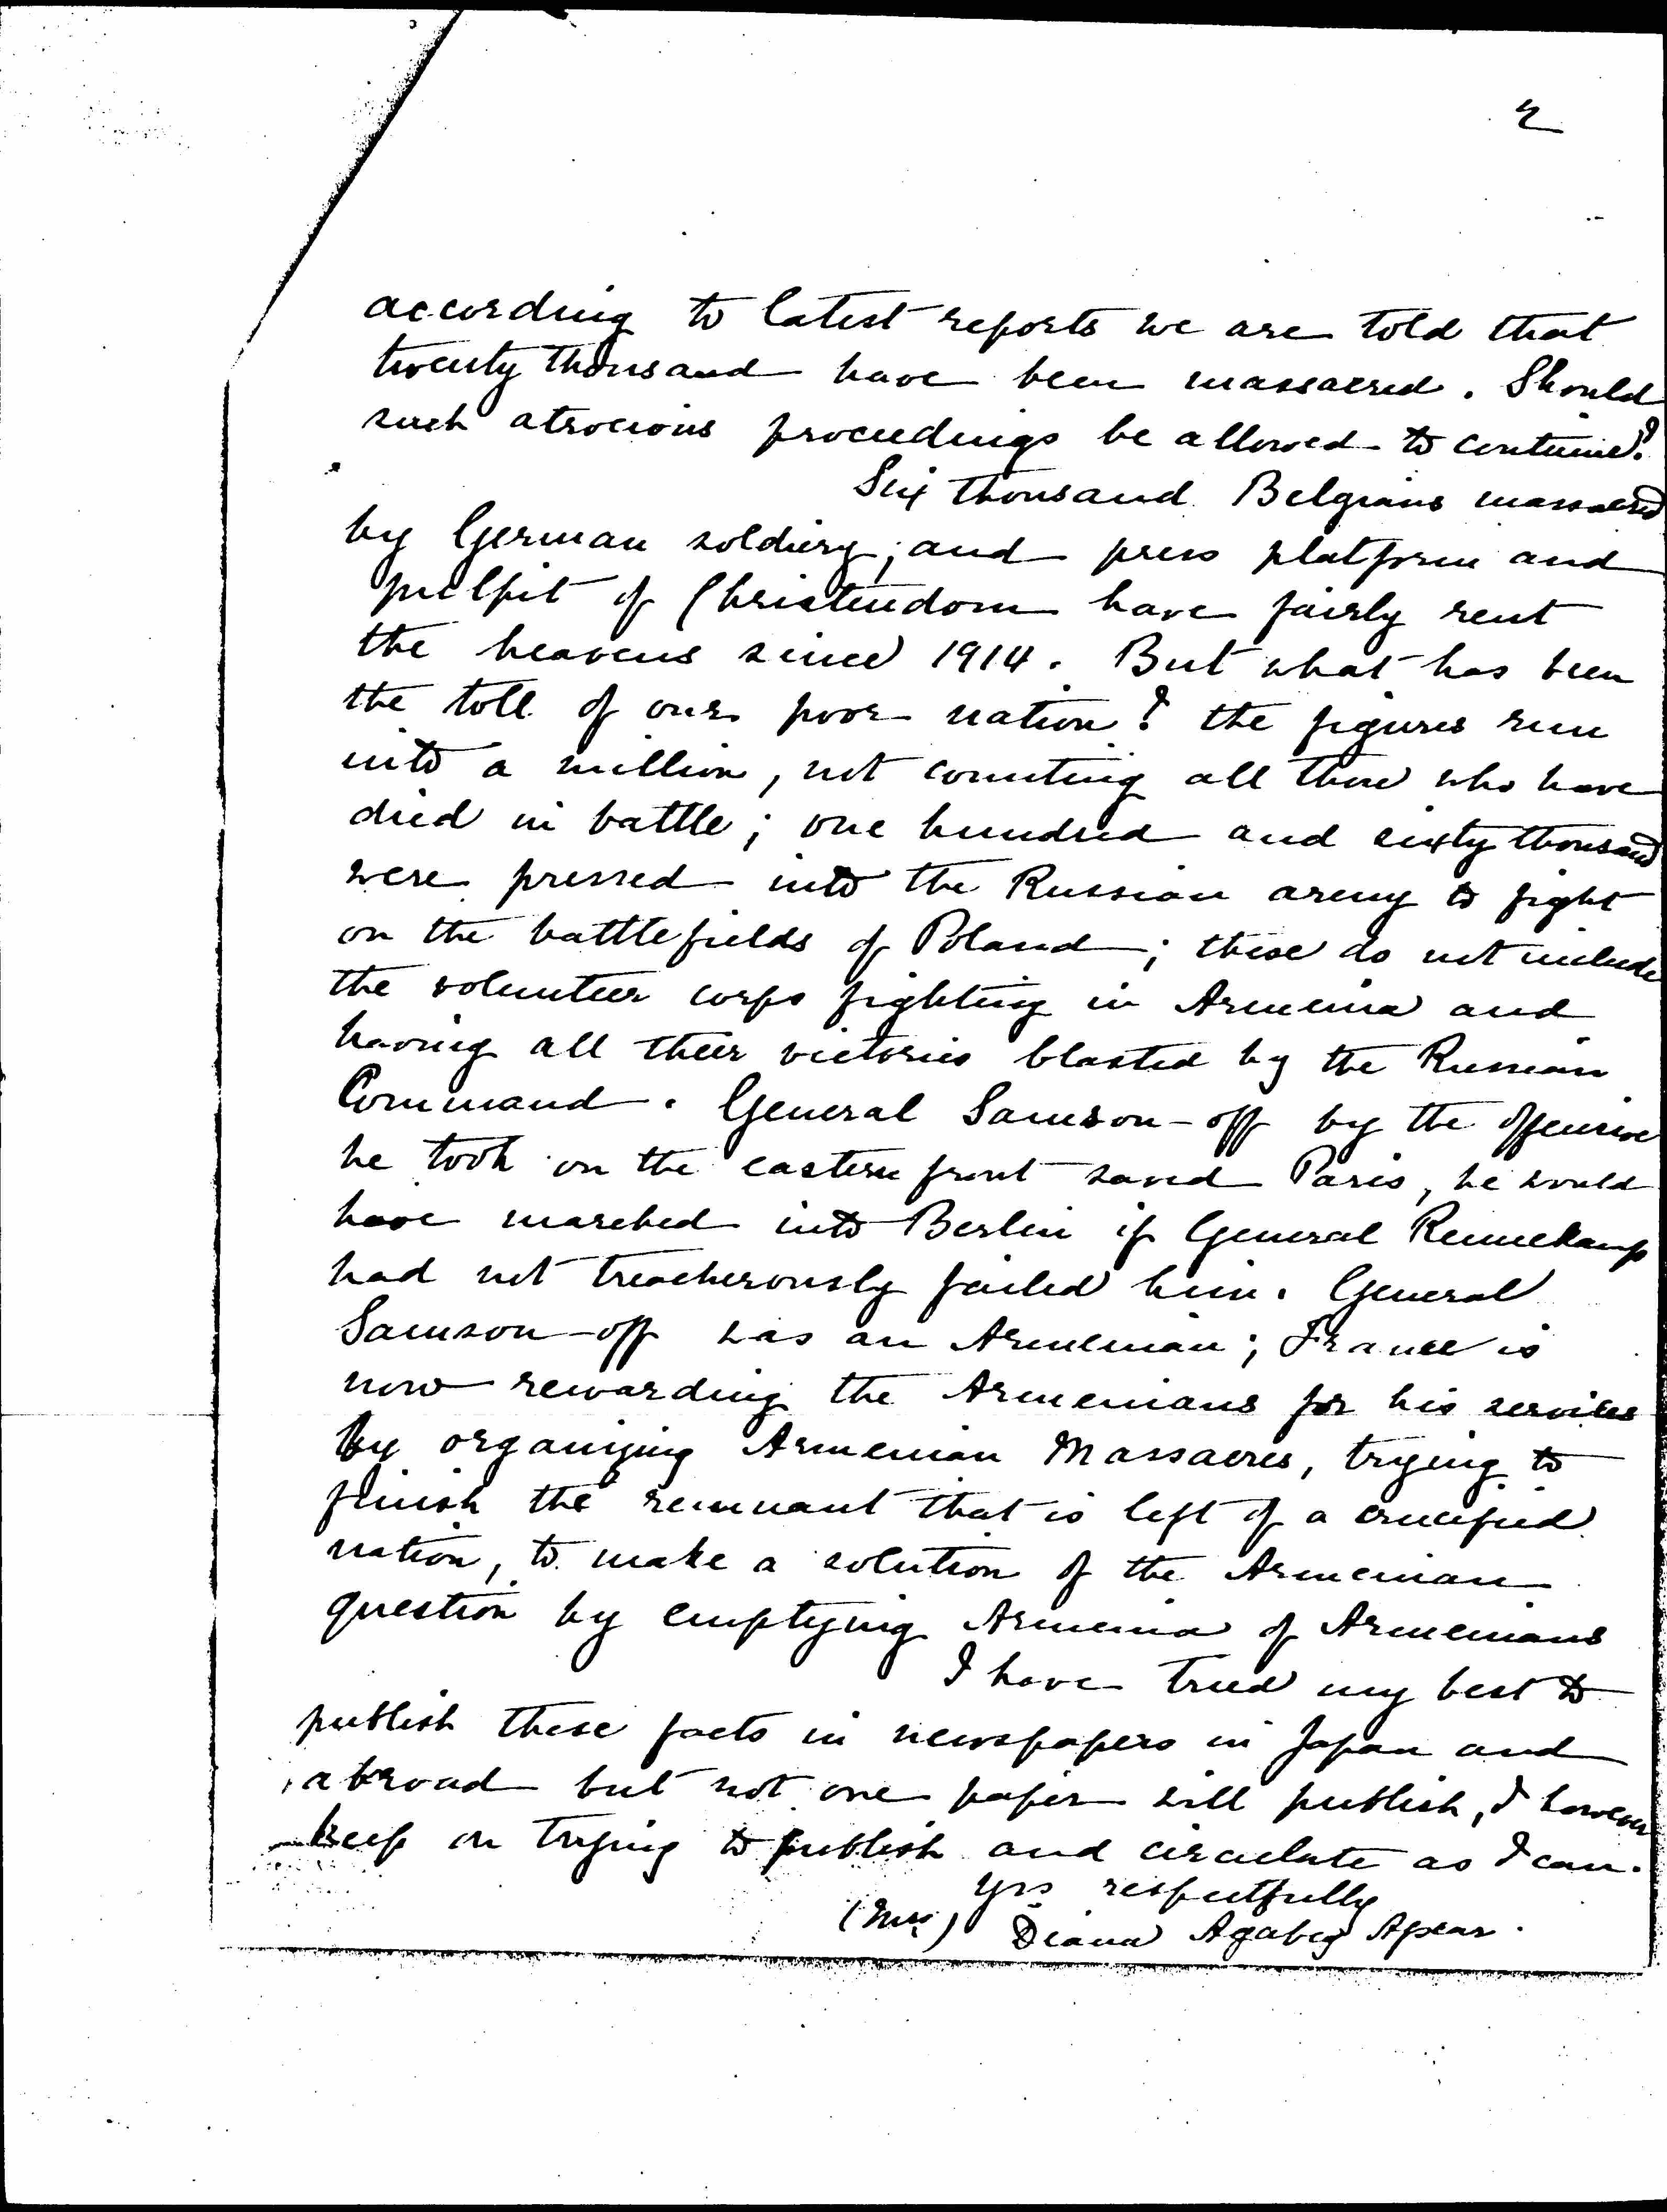 2
according to latest reports we are told that
twenty thousand have been massacred. Should
such atrocious proceedings be allowed to continue?
Six thousand Belgians massacred
by German soldiery; and press platform and
pulpit of Christendom have fairly rent
the heavens since 1914. But what has been
the toll of our poor nation? the figures run
into a million, not counting all those who have
died in battle; one hundred and sixty thousand
were pressed into the Russian army to fight
on the battlefields of Poland; these do not include
the volunteer corps fighting in Armenia and
having all their victories blasted by the Russian
Command. General Samson-off by the offensive
he took on the eastern front saved Paris, he would
have marched into Berlin if General Rennekamp
had not treacherously failed him. General
Samson-off was an Armenian; France is
now rewarding the Armenians for his services
by organizing Armenian Massacres, trying to
finish the remnant that is left of a crucified
nation, to make a solution of the Armenian
question by emptying Armenia of Armenians
I have tried my best to
publish these facts in newspapers in Japan and
abroad but not one paper will publish, I however
keep on trying to publish and circulate as I can.
Yrs respectfully
(Mrs) Diana Agabeg Apcar.